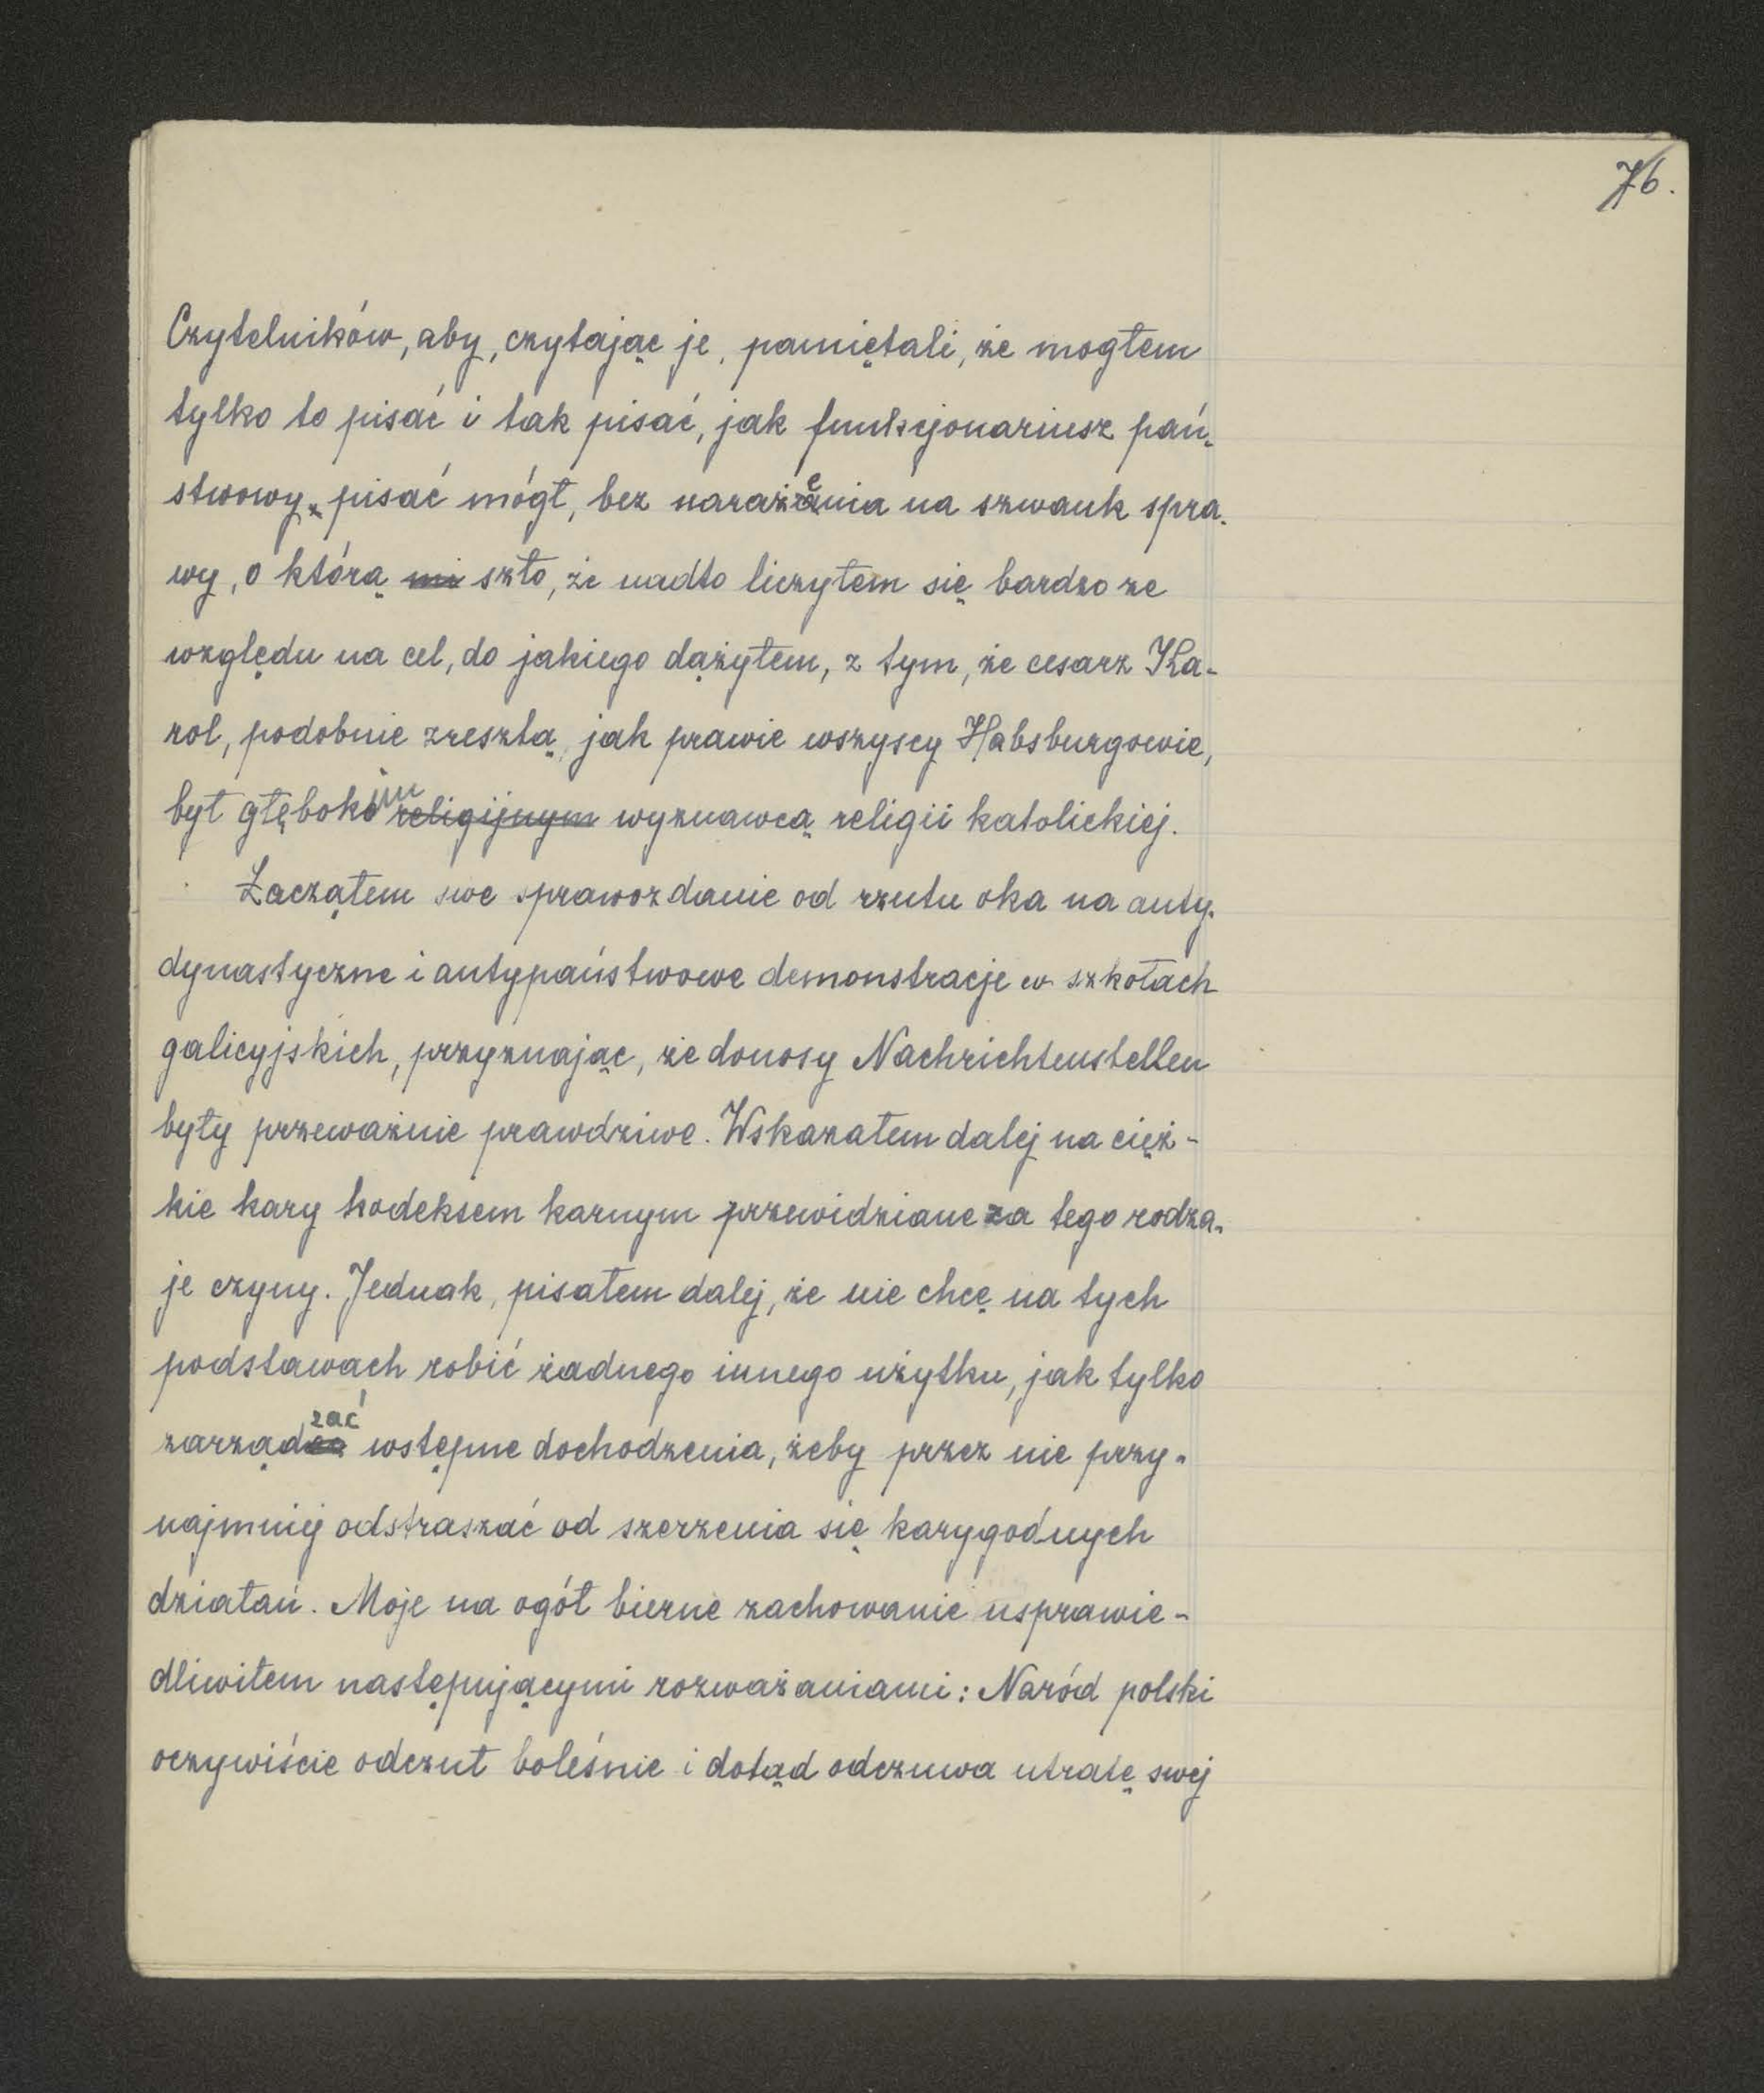 76.
Czytelników, aby, czytając je, pamiętali, że mogłem
tylko to pisać i tak pisać, jak funkcjonariusz pań-
stwowy pisać mógł, bez narażenia na szwank spra-
wy, o którą mi szło, że nadto liczyłem się bardzo ze
względu na cel, do jakiego dążyłem, z tym, że cesarz Ka-
rol, podobnie zresztą, jak prawie wszyscy Habsburgowie,
był głębokim religijnym wyznawcą religii katolickiej.
Zacząłem swe sprawozdanie od rzutu oka na anty-
dynastyczne i antypaństwowe demonstracje w szkołach
galicyjskich, przyznając, że donosy Nachrichtenstellen
były przeważnie prawdziwe. Wskazałem dalej na cięż-
kie kary kodeksem karnym przewidziane za tego rodza-
je czyny. Jednak, pisałem dalej, że nie chcę na tych
podstawach robić żadnego innego użytku, jak tylko
zarządzać wstępne dochodzenia, żeby przez nie przy-
najmniej odstraszać od szerzenia się karygodnych
działań. Moje na ogół bierne zachowanie usprawie-
dliwiłem następującymi rozważaniami: Naród polski
oczywiście odczuł boleśnie i dotąd odczuwa utratę swej